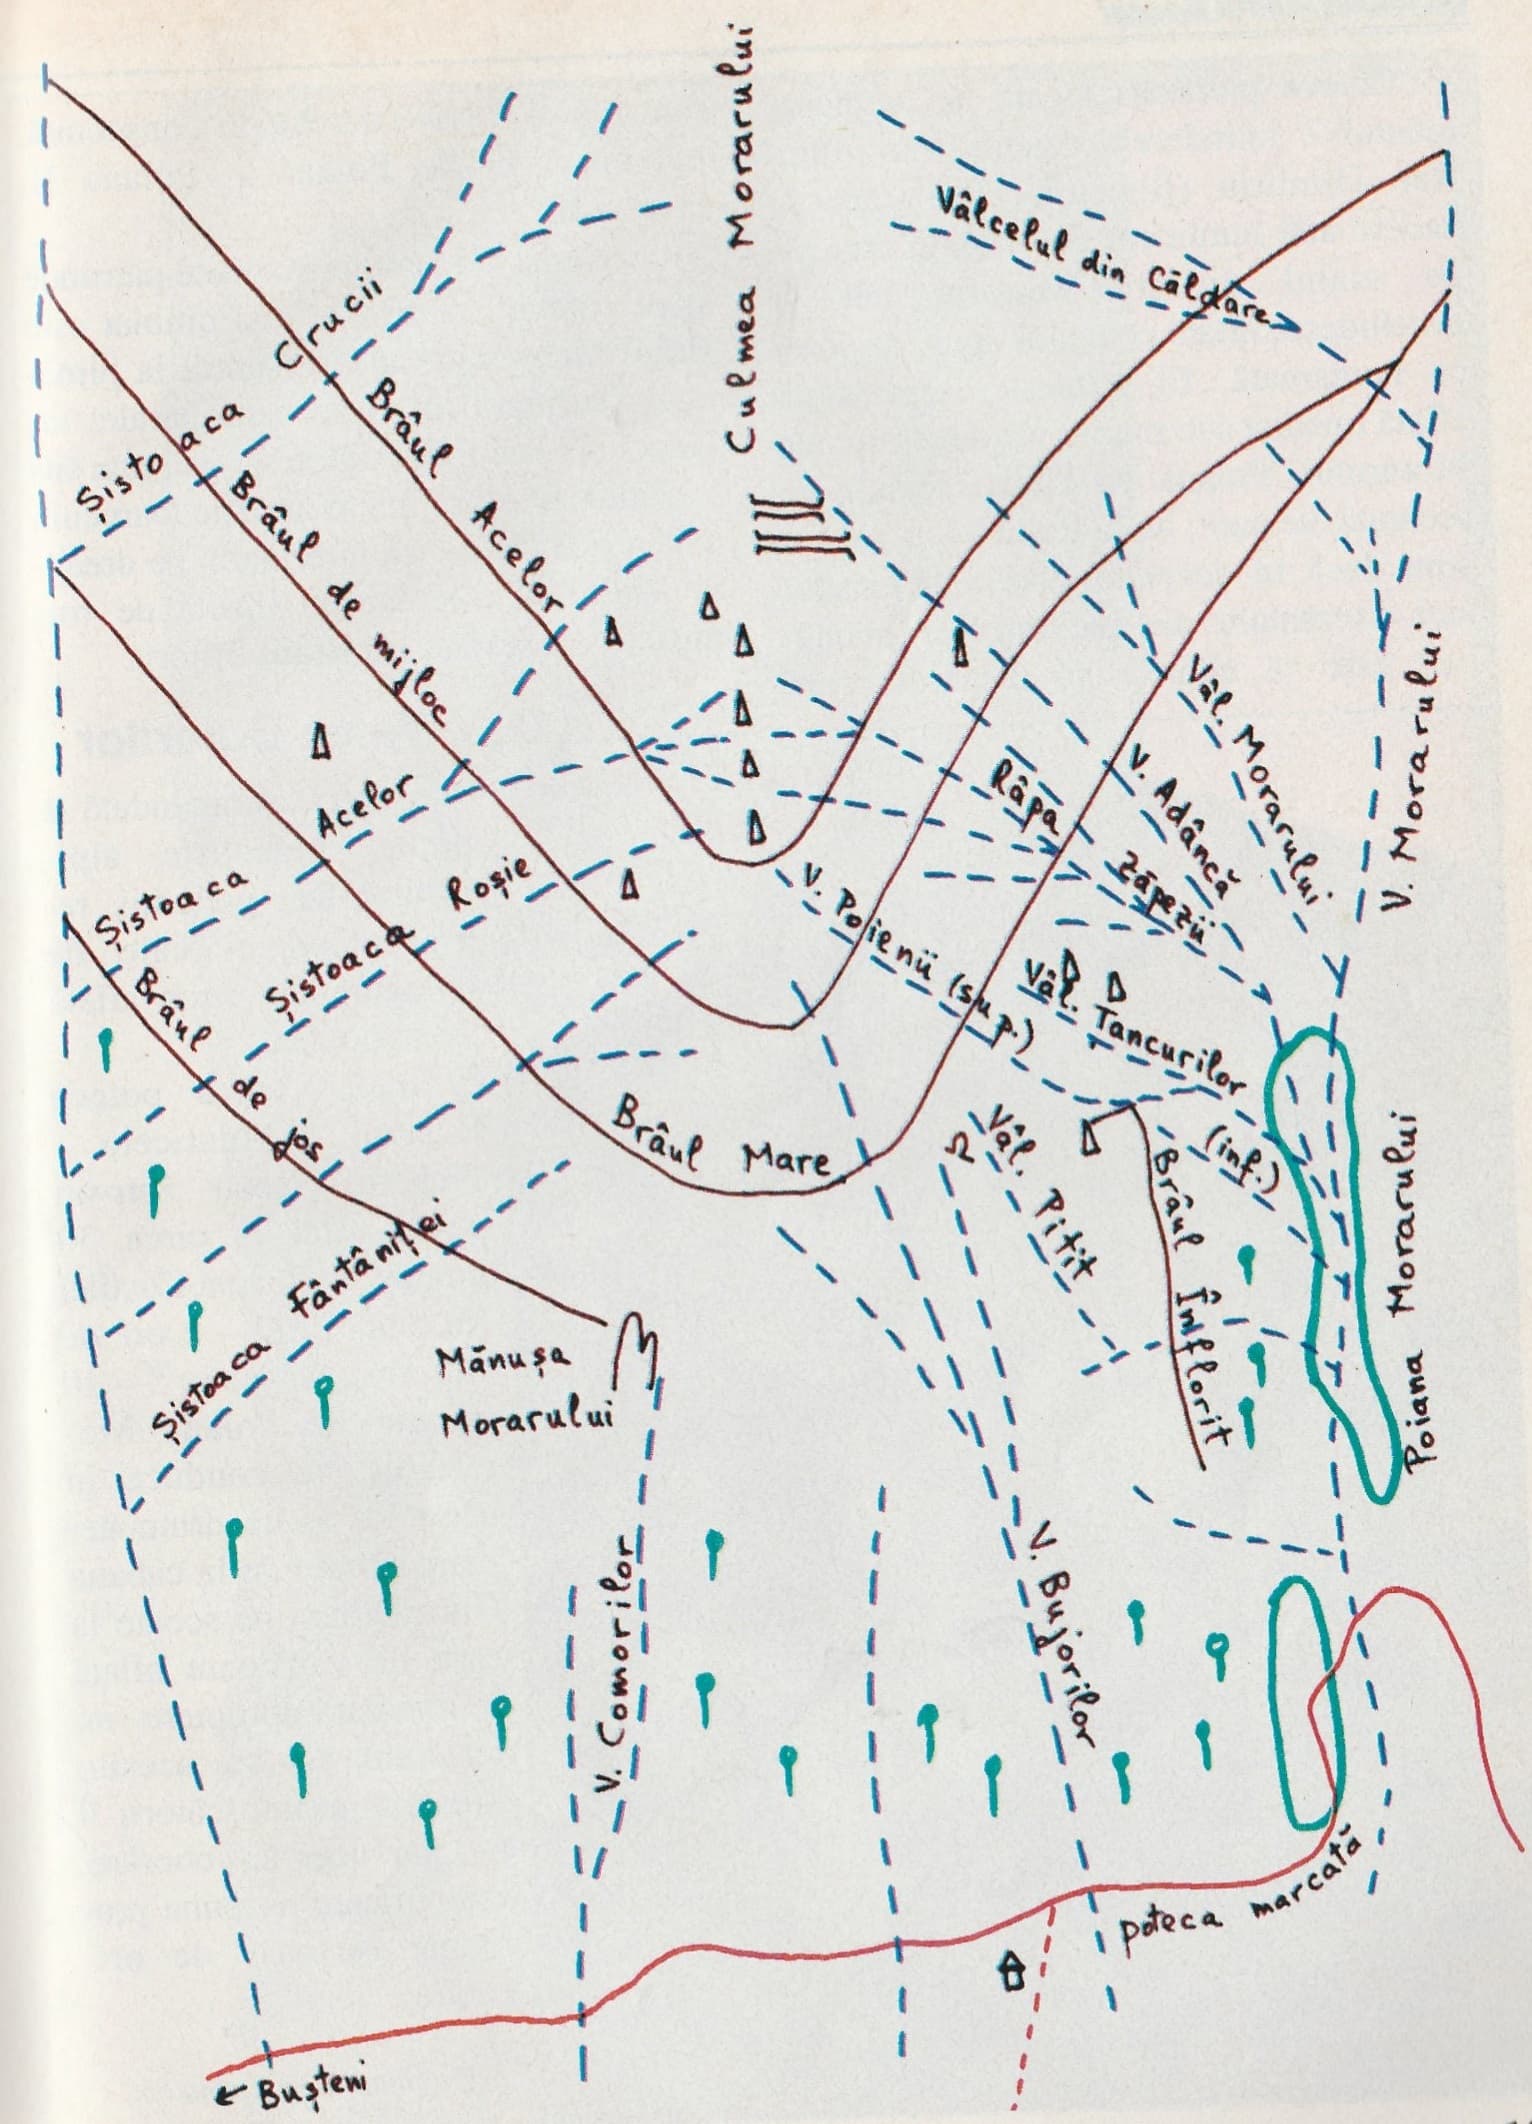 Culmea Morarului
Vâlcelul din Căldare
Șistoaca Crucii
Brâul Acelor
Brâul de mijloc
Șistoaca Acelor
Șistoaca Roșie
Brâul de jos
Brâul Mare
Șistoaca Fântâniței
Mănușa
Morarului
V. Comorilor
V. Bujorilor
V. Poienii (sup.)
(inf.)
Râpa Zăpezii
V. Adâncă
Vâl. Morarului
V. Morarului
Vâl. Tancurilor
Vâl. Pitit
Brâul Înflorit
Poiana Morarului
poteca marcată
← Bușteni